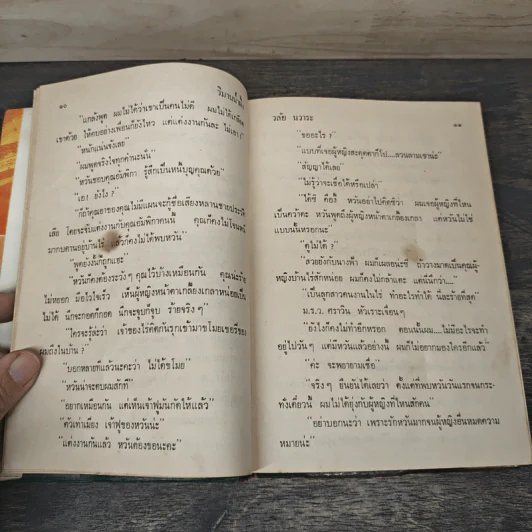 ๑๐
วิมานไม้ฉำ
"แกล้งพูด ผมไม่ได้ว่าเขาเป็นคนไม่ดี ผมไม่ได้เกลียด
เขาด้วย ให้คบอย่างเพื่อนก็ยังไหว แต่แต่งงานกันละ ไม่เอา!"
"หนักแน่นจังเลย"
"ผมพูดจริงใจทุกคำนะนี่"
"หวันชอบคุณอัมพิกา รู้สึกเป็นหนี้บุญคุณด้วย"
"เอ! ยังไง?"
"ก็ถ้าคุณอาของคุณไม่มีแผนจะกู้ชื่อเสียงหลานชายประวัติ
เสีย โดยจะจับแต่งงานกับคุณอัมพิกาคนนี้ คุณก็คงไม่โจนหนี
มากบดานอยู่บ้านไร่ แล้วก็คงไม่ได้พบหวัน"
"พูดยังงั้นก็ถูกแฮะ"
"หวันก็คงต้องระวังๆ คุณไว้บ้างเหมือนกัน คุณน่ะร้าย
ไม่หยอก มือไวใจเร็ว เห็นผู้หญิงหน้าตาเกลี้ยงเกลาหน่อยเป็น
ไม่ได้ นึกจะกอดก็กอด นึกจะจูบก็จูบ ร้ายจริงๆ"
"ใครจะรู้ล่ะว่า เจ้าของไร่ติดกันรุกเข้ามาขโมยเชอรี่ของ
ผมถึงในบ้าน?"
"บอกหลายทีแล้วนะคะว่า ไม่ได้ขโมย"
"หวันน่าจะตบผมสักที"
"อยากเหมือนกัน แต่เห็นเจ้าฟูมันกัดให้แล้ว"
"ตัวเท่าเมี่ยง เจ้าฟูของหวันน่ะ"
"แต่งงานกันแล้ว หวันต้องขอนะคะ"
วลัย นวาระ
๑๑
"ขออะไร?"
"แบบที่เจอผู้หญิงสะดุดตาก็ไป....ลวนลามเขาน่ะ"
"สัญญาได้เลย"
"ไม่รู้ว่าจะเชื่อได้หรือเปล่า"
"ได้ซี คืองี้ หวันอย่าไปคิดซีว่า ผมเจอผู้หญิงที่ไหน
เป็นคว้าคะ หวันพูดถึงผู้หญิงหน้าตาเกลี้ยงเกลา แต่หวันไม่ใช่
แบบนั้นหรอกนะ"
"ดูไม่ได้?"
"สวยยังกับนางฟ้า ผมก็เผลอน่ะซี ถ้าวางมาดเป็นคุณผู้
หญิงบ้านไร่สักหน่อย ผมก็คงไม่กล้าแตะ แต่นี่นึกว่า...."
"เป็นลูกสาวคนงานในไร่ ทำอะไรก็ได้ นี่แหละร้ายที่สุด"
ม.ร.ว. ศราวิน หัวเราะเจื่อนๆ
"ยังไงก็คงไม่ทำอีกหรอก ตอนนั้นผม....ไม่มีอะไรจะทำ
อยู่ไปวันๆ แต่มีหวันแล้วอย่างนี้ ผมก็ไม่อยากมองใครอีกแล้ว"
"ค่ะ จะพยายามเชื่อ"
"จริงๆ ยืนยันได้เลยว่า ตั้งแต่ที่พบหวันวันแรกจนกระ-
ทั่งเดี๋ยวนี้ ผมไม่ได้ยุ่งกับผู้หญิงที่ไหนสักคน"
"อย่าบอกนะว่า เพราะรักหวันมากจนผู้หญิงอื่นหมดความ
หมายน่ะ"